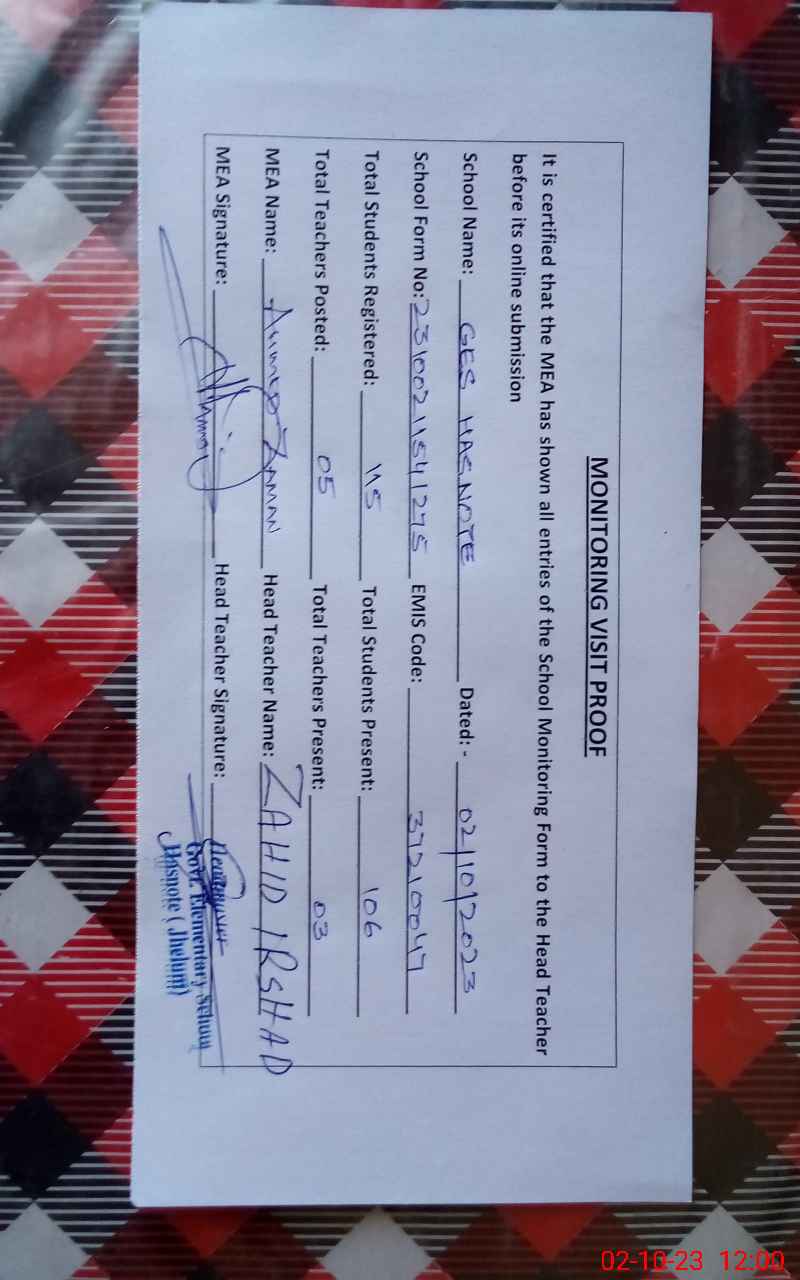 MONITORING VISIT PROOF
It is certified that the MEA has shown all entries of the School Monitoring Form to the Head Teacher
before its online submission
School Name: GES HASNOTE Dated: - 02/10/2023
School Form No: 231002115541275 EMIS Code: 37210047
Total Students Registered: 115 Total Students Present: 106
Total Teachers Posted: 05 Total Teachers Present: 03
MEA Name: Ahmed ZAMAN Head Teacher Name: ZAHID IRSHAD
MEA Signature: Head Teacher Signature:
Govt. Elementary School
Hasnote (Jhelum)
02-10-23 12:00